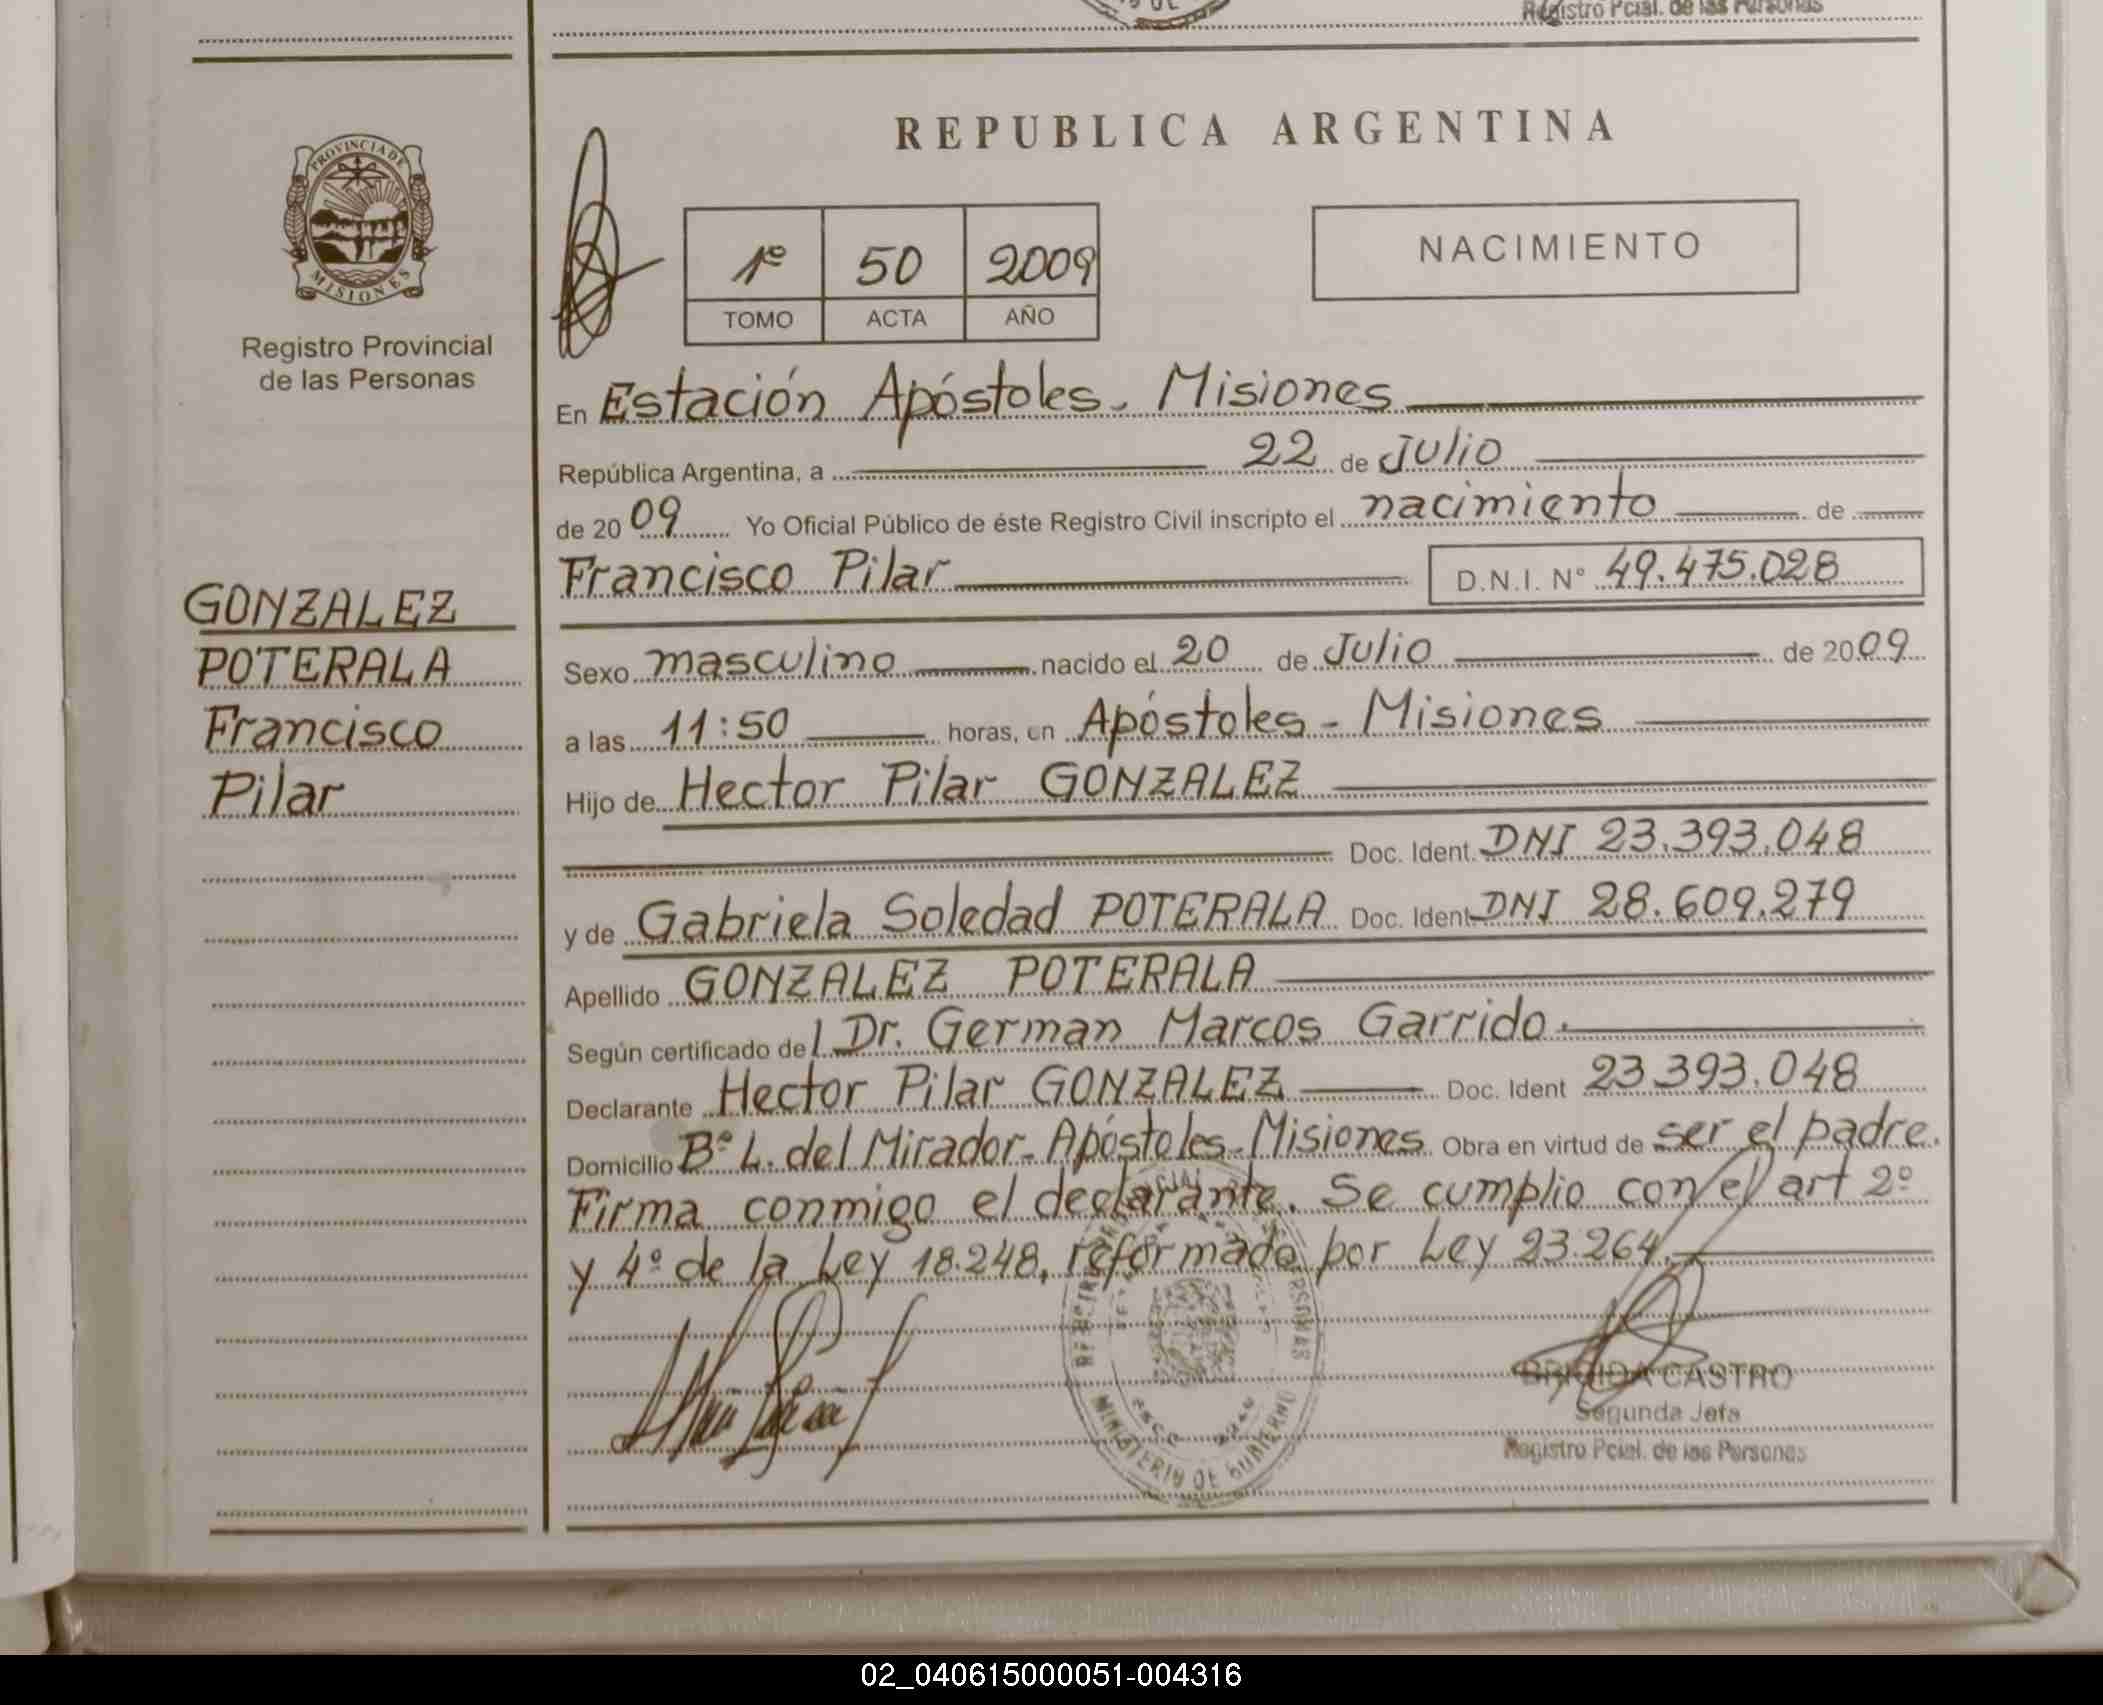 Registro Pcial. de las Personas
PROVINCIA DE
MISIONES
Registro Provincial
de las Personas
GONZALEZ
POTERALA
Francisco
Pilar
REPUBLICA ARGENTINA
1º 50 2009
TOMO ACTA AÑO
NACIMIENTO
En Estación Apóstoles - Misiones
República Argentina, a 22 de Julio
de 2009 Yo Oficial Público de éste Registro Civil inscripto el nacimiento de
Francisco Pilar D.N.I. Nº 49.475.028
Sexo masculino nacido el 20 de Julio de 2009
a las 11:50 horas, en Apóstoles - Misiones
Hijo de Hector Pilar GONZALEZ
Doc. Ident. DNI 23.393.048
y de Gabriela Soledad POTERALA Doc. Ident. DNI 28.609.279
Apellido GONZALEZ POTERALA
Según certificado del Dr. German Marcos Garrido.
Declarante Hector Pilar GONZALEZ Doc. Ident 23.393.048
Domicilio Bº L. del Mirador - Apóstoles - Misiones Obra en virtud de ser el padre.
Firma conmigo el declarante. Se cumplio con el art 2º
y 4º de la Ley 18.248, reformado por Ley 23.264.
MINISTERIO DE GOBIERNO
BRIGIDA CASTRO
Segunda Jefa
Registro Pcial. de las Personas
02_040615000051-004316